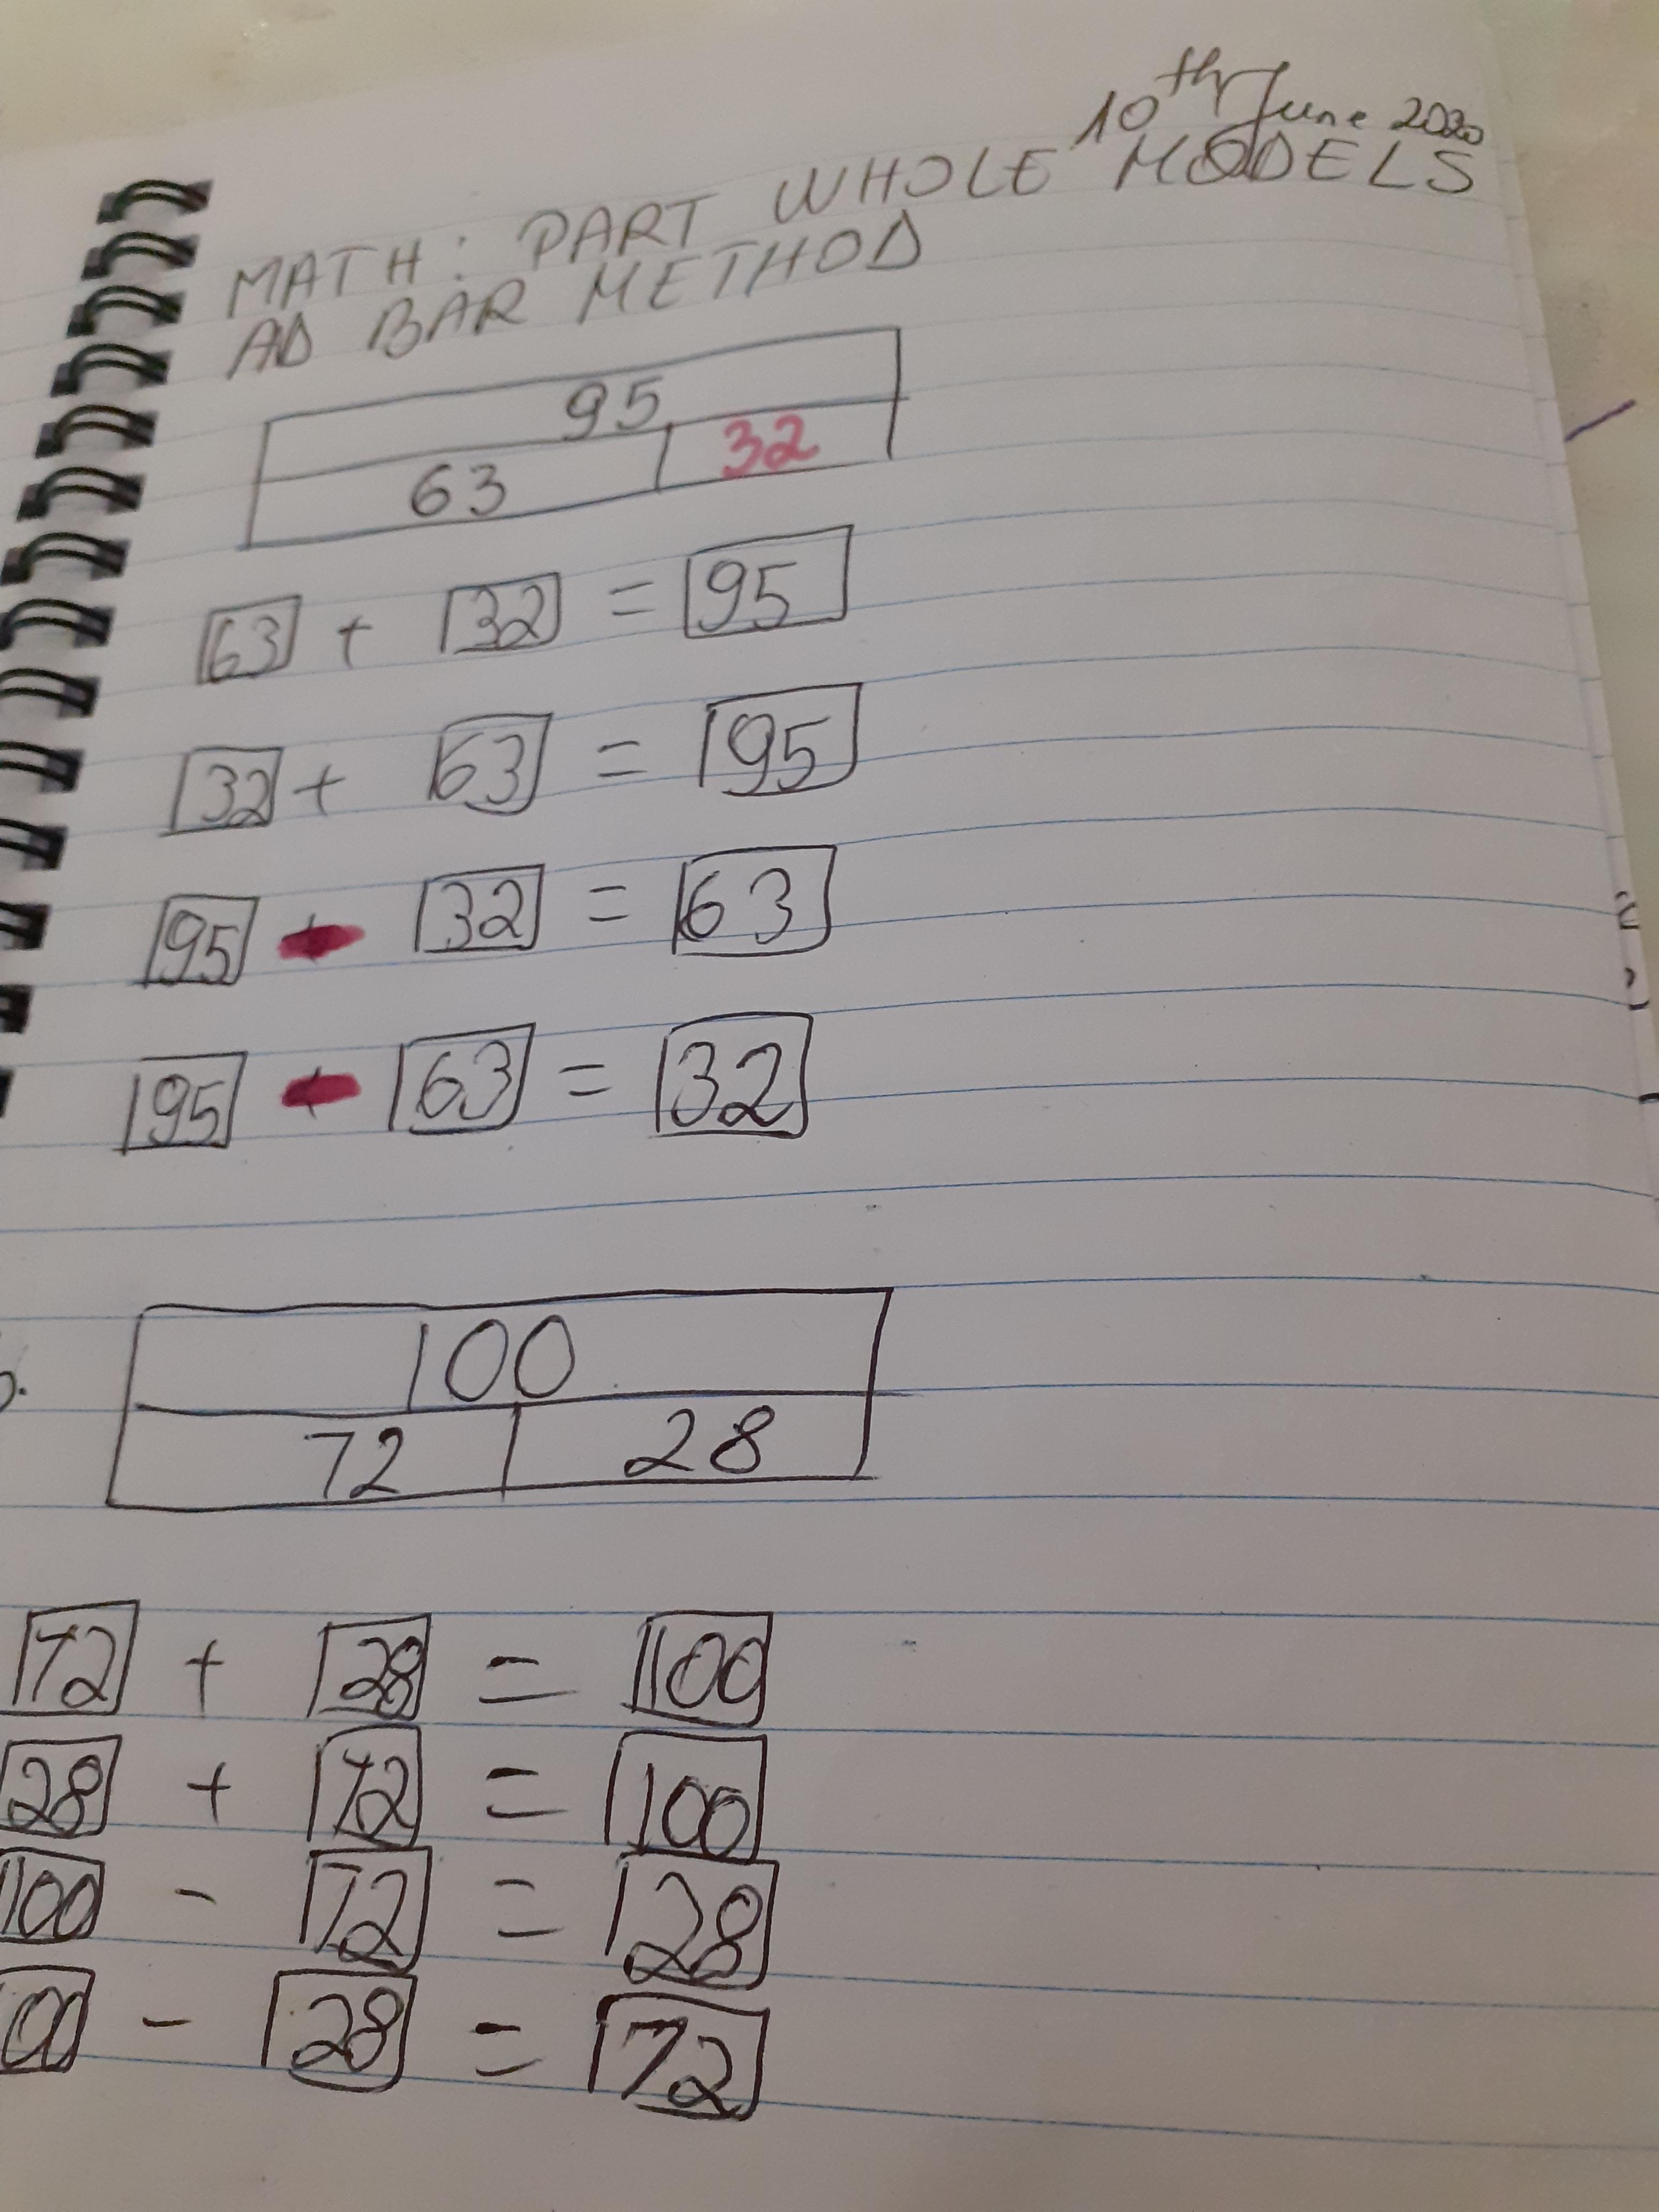 10th June 2020
MATH: PART WHOLE MODELS
AD BAR METHOD
95
63 32
63 + 32 = 95
32 + 63 = 95
95 - 32 = 63
95 - 63 = 32
100
72 28
72 + 28 = 100
28 + 72 = 100
100 - 72 = 28
00 - 28 = 72